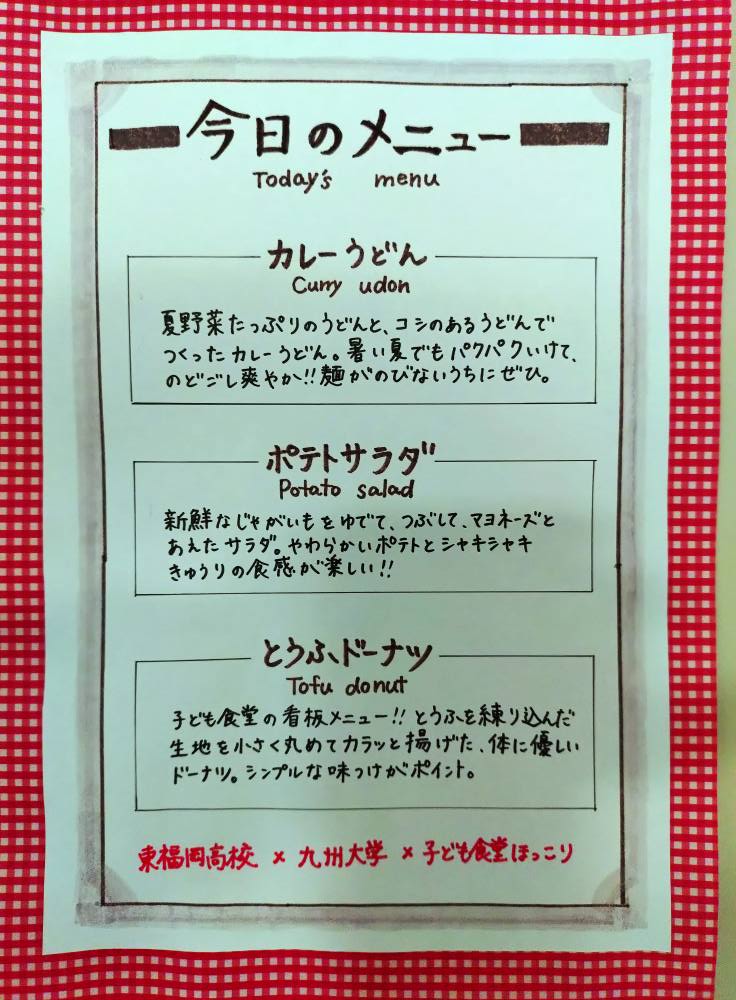 今日のメニュー
Today's menu
カレーうどん
Curry udon
夏野菜たっぷりのうどんと、コシのあるうどんで
つくったカレーうどん。暑い夏でもパクパクいけて、
のどごし爽やか!!麺がのびないうちにぜひ。
ポテトサラダ
Potato salad
新鮮なじゃがいもをゆでて、つぶして、マヨネーズと
あえたサラダ。やわらかいポテトとシャキシャキ
きゅうりの食感が楽しい!!
とうふドーナツ
Tofu donut
子ども食堂の看板メニュー!!とうふを練り込んだ
生地を小さく丸めてカラッと揚げた、体に優しい
ドーナツ。シンプルな味つけがポイント。
東福岡高校 × 九州大学 × 子ども食堂ほっこり